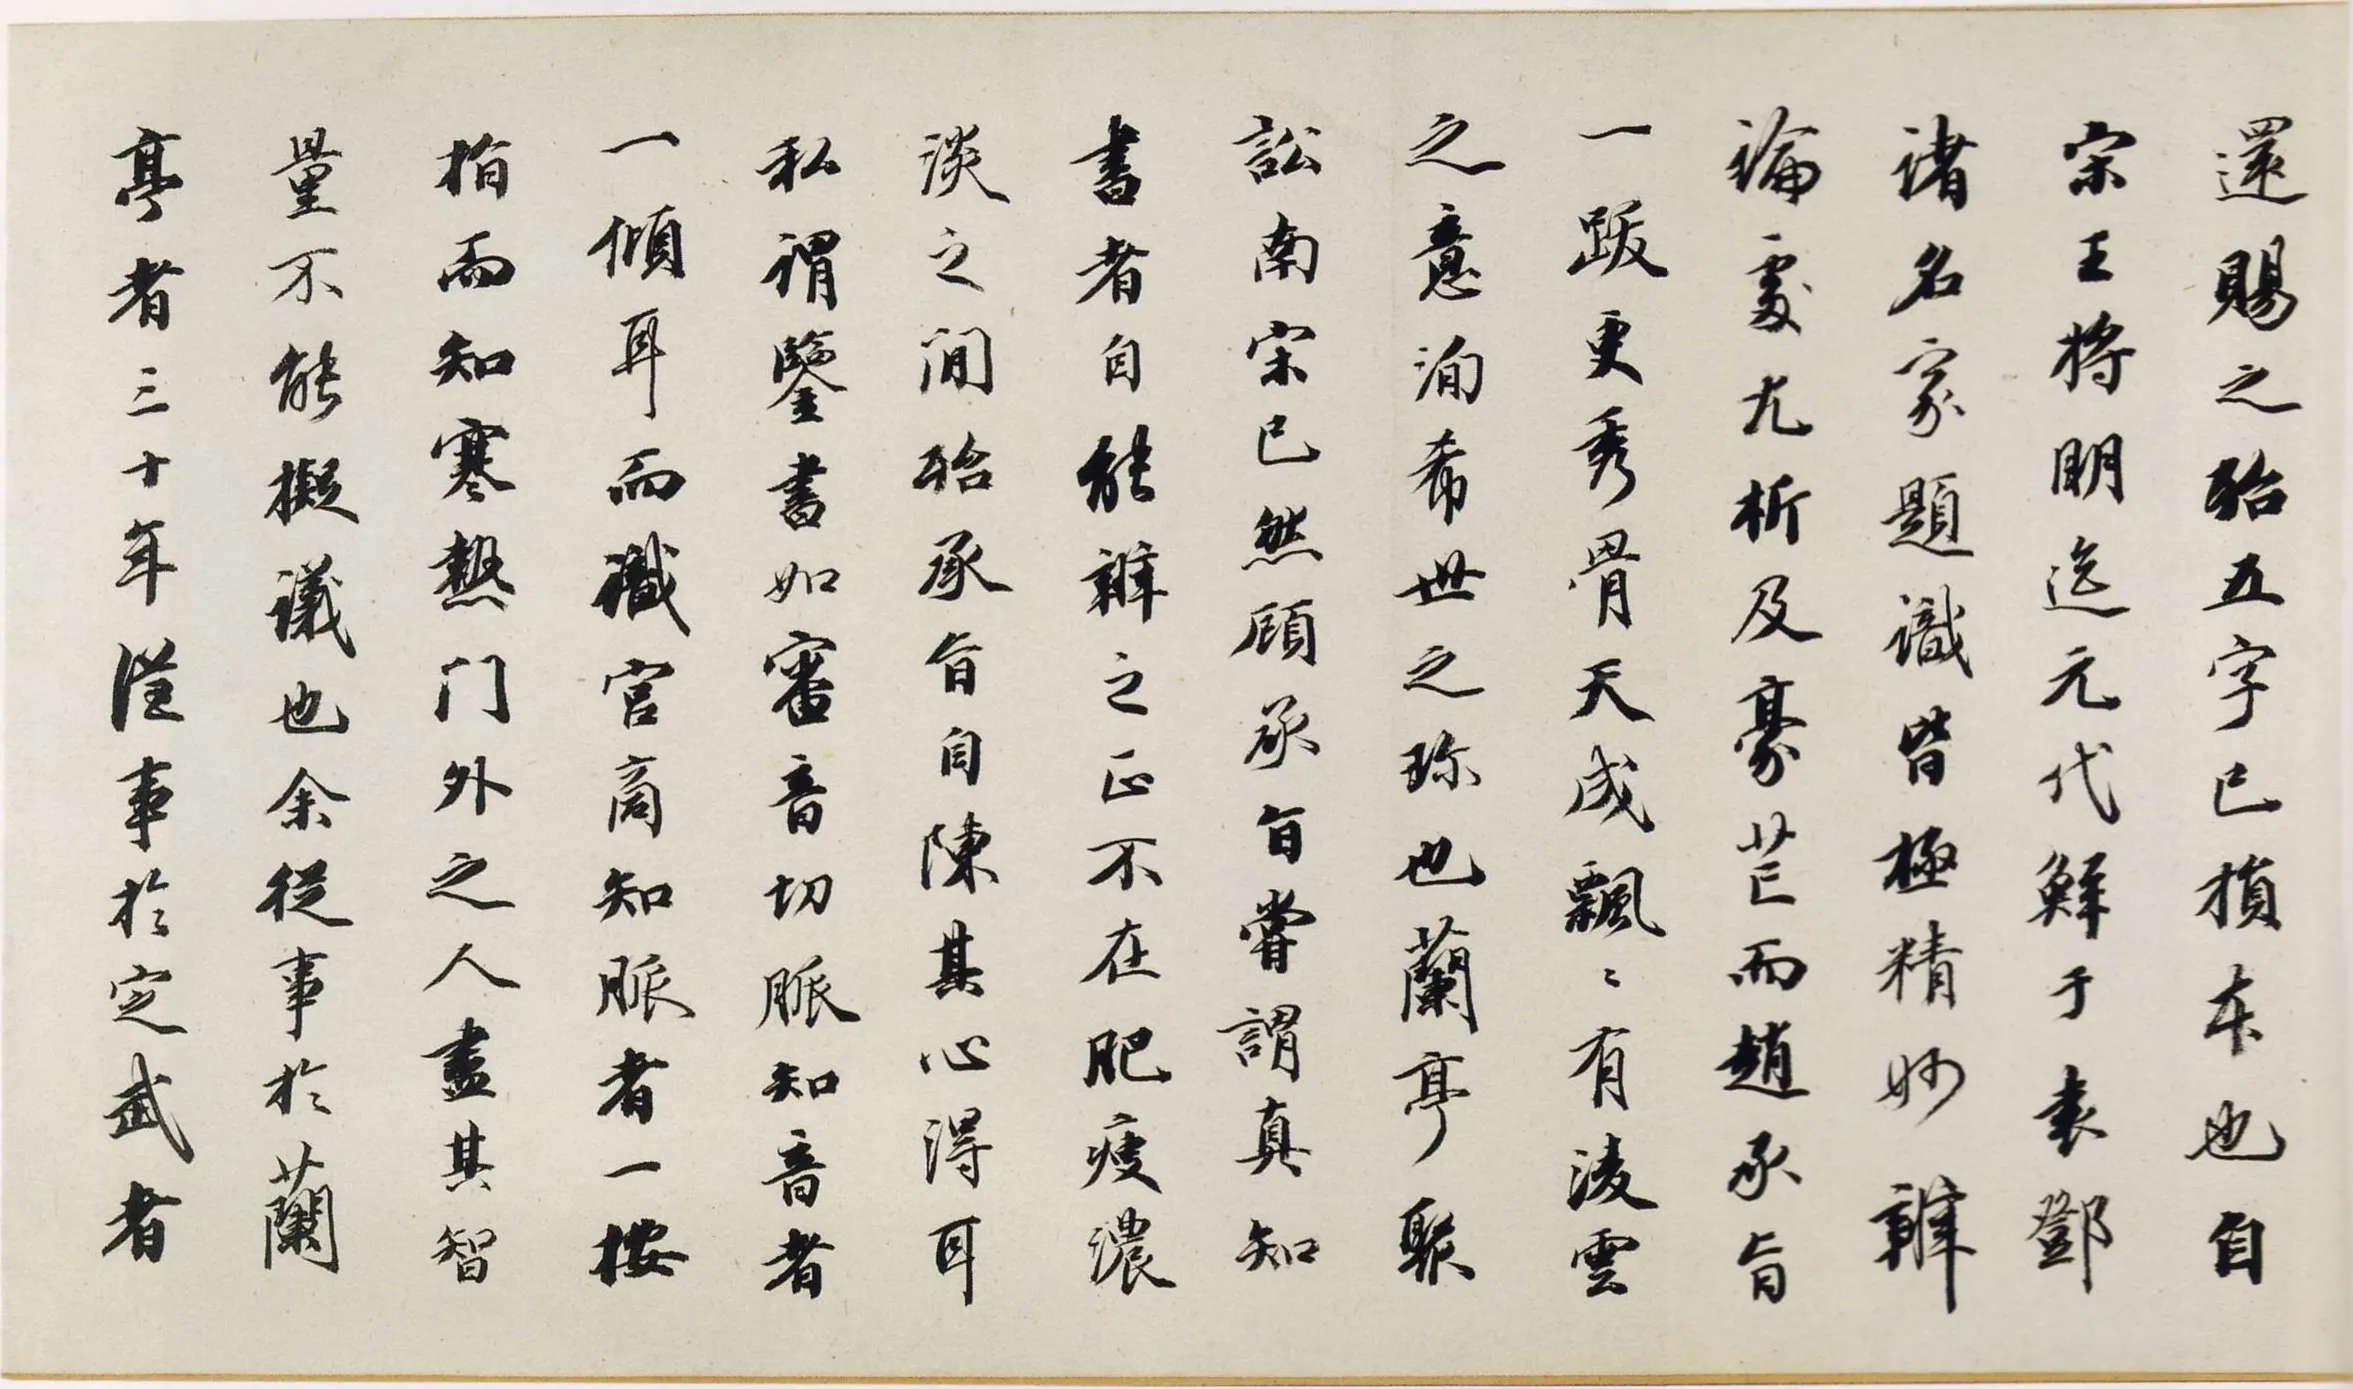 還賜之殆五字已損本也自
宋王將明迄元代鮮于袁鄧
諸名家題識皆極精妙辨
論處尤析及豪芒而趙承旨
一跋更秀骨天成飄〻有凌雲
之意洵希世之珍也蘭亭聚
訟南宋已然顧承旨嘗謂真知
書者自能辨之正不在肥瘦濃
淡之間殆承旨自陳其心得耳
私謂鑒書如審音切脈知音者
一傾耳而識宮商知脈者一按
指而知寒熱門外之人盡其智
量不能擬議也余從事於蘭
亭者三十年從事於定武者